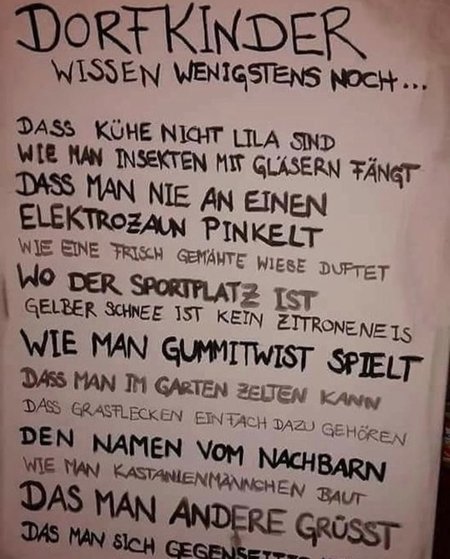 DORFKINDER
WISSEN WENIGSTENS NOCH...
DASS KÜHE NICHT LILA SIND
WIE MAN INSEKTEN MIT GLÄSERN FÄNGT
DASS MAN NIE AN EINEN
ELEKTROZAUN PINKELT
WIE EINE FRISCH GEMÄHTE WIESE DUFTET
WO DER SPORTPLATZ IST
GELBER SCHNEE IST KEIN ZITRONENEIS
WIE MAN GUMMITWIST SPIELT
DASS MAN IM GARTEN ZELTEN KANN
DASS GRASFLECKEN EINFACH DAZU GEHÖREN
DEN NAMEN VOM NACHBARN
WIE MAN KASTANIENMÄNNCHEN BAUT
DAS MAN ANDERE GRÜSST
DAS MAN SICH